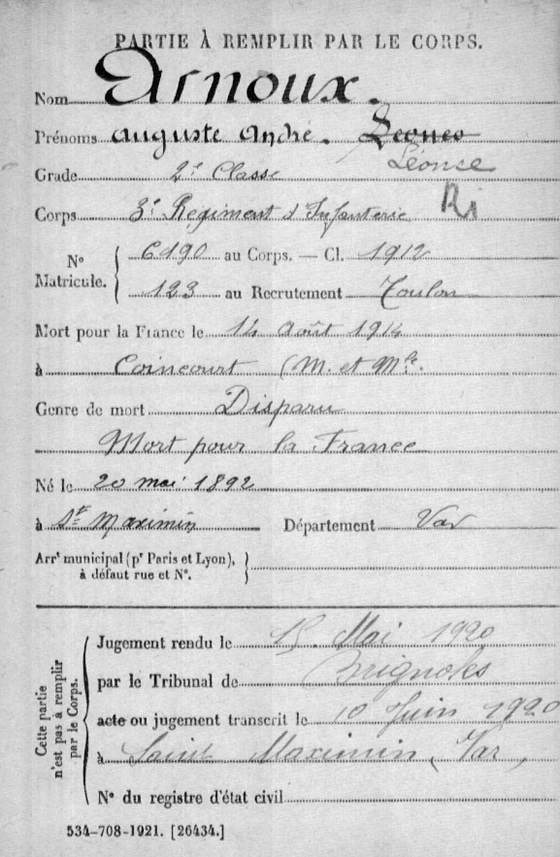 PARTIE À REMPLIR PAR LE CORPS.
Nom Arnoux.
Prénoms auguste andré. Léonce
Léonce
Grade 2e Classe
Corps 3e Régiment d'Infanterie Ri
No Matricule. 6190 au Corps. — Cl. 1912
123 au Recrutement Toulon
Mort pour la France le 14 août 1914
à Coincourt (M. et Mlle.
Genre de mort Disparu
Mort pour la France
Né le 20 mai 1892
à St Maximin Département Var
Arrt municipal (pr Paris et Lyon),
à défaut rue et No.
Cette partie n'est pas à remplir par le Corps.
Jugement rendu le 15. Mai 1920
par le Tribunal de Brignoles
acte ou jugement transcrit le 10 Juin 1920
à Saint Maximin (Var)
No du registre d'état civil
534-708-1921. [26434.]